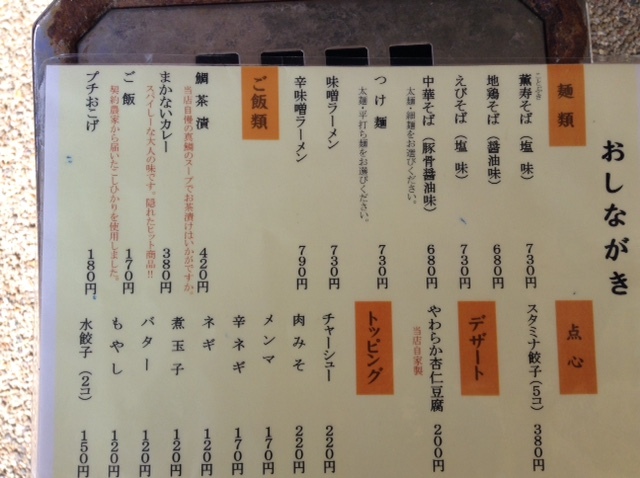 おしながき
麺類
薫寿そば（塩　味） 730円
ことぶき
地鶏そば（醤油味） 680円
えびそば（塩　味） 730円
中華そば（豚骨醤油味） 680円
太麺・細麺をお選びください。
つけ麺 730円
太麺・平打ち麺をお選びください。
味噌ラーメン 730円
辛味噌ラーメン 790円
ご飯類
鯛茶漬 420円
当店自慢の真鯛のスープでお茶漬けはいかがですか。
まかないカレー 380円
スパイシーな大人の味です。隠れたヒット商品!!
ご飯 170円
契約農家から届いたこしひかりを使用しました。
プチおこげ 180円
点心
スタミナ餃子（5コ） 380円
デザート
やわらか杏仁豆腐 200円
当店自家製
トッピング
チャーシュー 220円
肉みそ 220円
メンマ 170円
辛ネギ 170円
ネギ 120円
煮玉子 120円
バター 120円
もやし 120円
水餃子（2コ） 150円